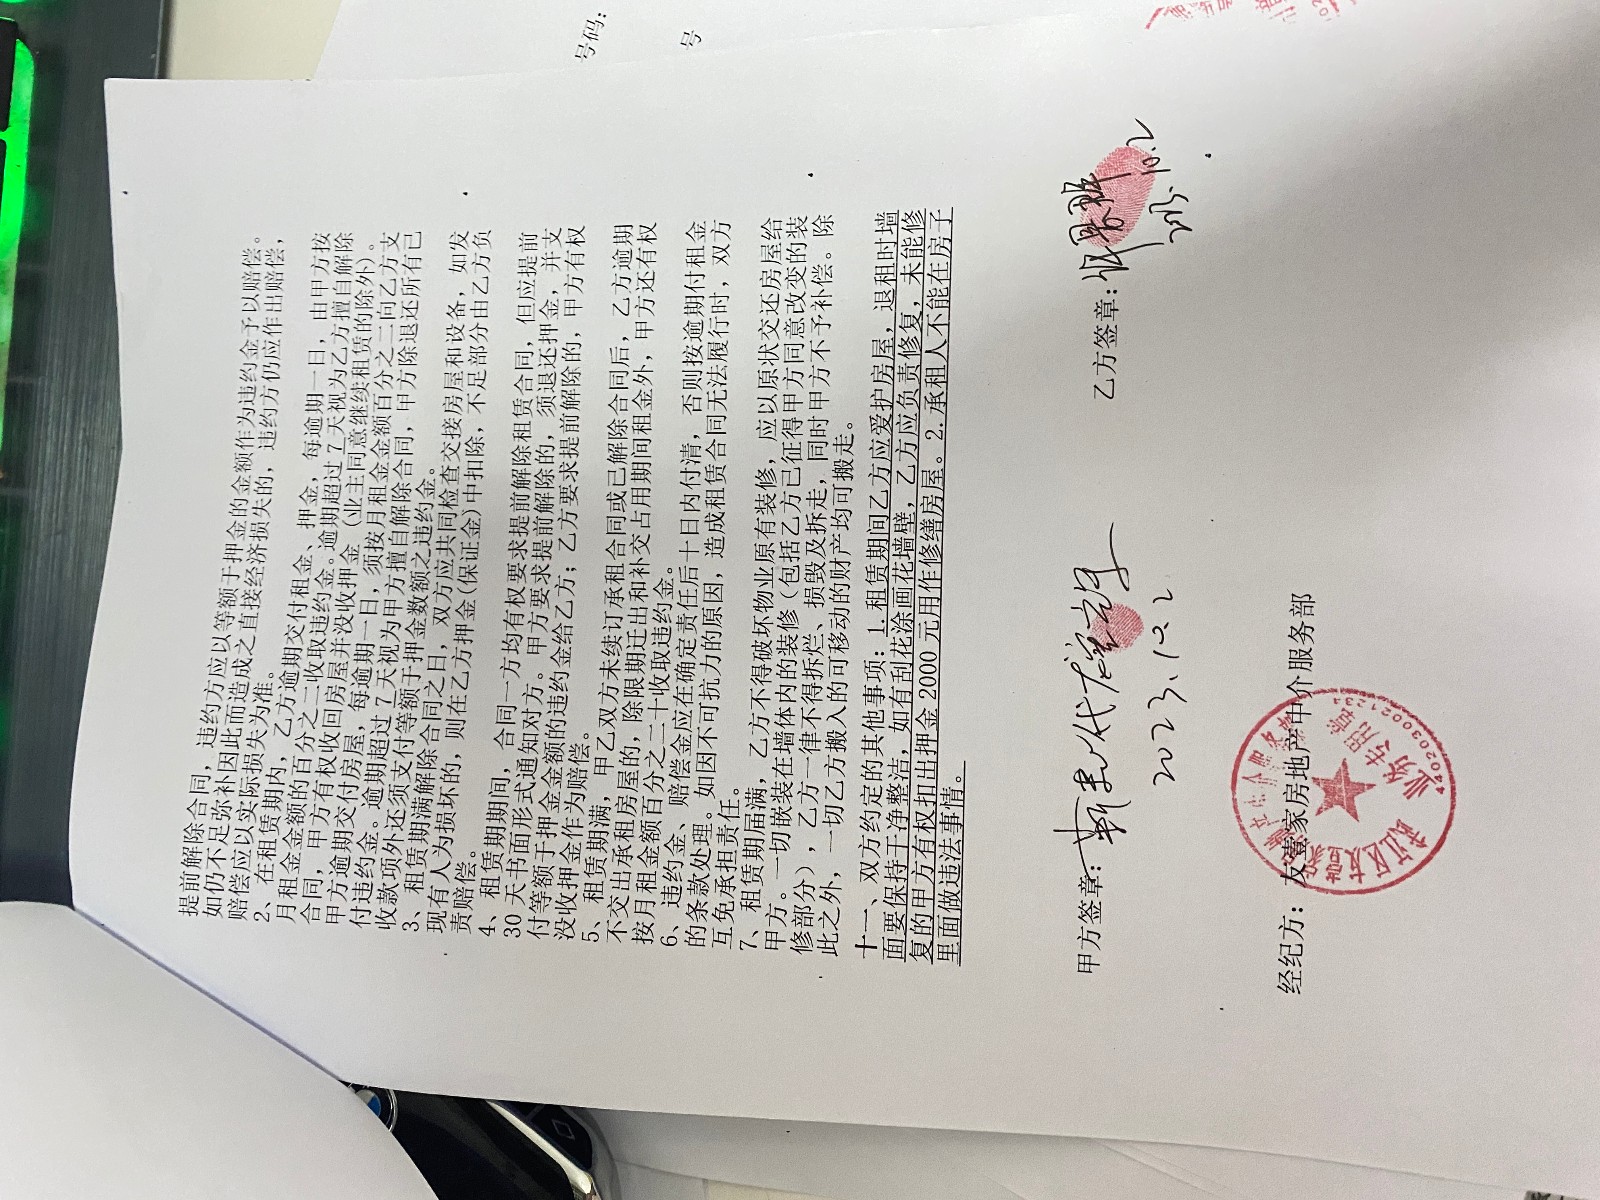 号码：
号
提前解除合同，违约方应以等额于押金的金额作为违约金予以赔偿。
如仍不足弥补因此而造成之直接经济损失的，违约方仍应作出赔偿，
赔偿应以实际损失为准。
2、在租赁期内，乙方逾期交付租金、押金，每逾期一日，由甲方按
月租金金额的百分之二收取违约金。逾期超过7天视为乙方擅自解除
合同，甲方有权收回房屋并没收押金（业主同意继续租赁的除外）。
甲方逾期交付房屋，每逾期一日，须按月租金金额百分之二向乙方支
付违约金。逾期超过7天视为甲方擅自解除合同，甲方除退还所有已
收款项外还须支付等额于押金数额之违约金。
3、租赁期满解除合同之日，双方应共同检查交接房屋和设备，如发
现有人为损坏的，则在乙方押金(保证金)中扣除，不足部分由乙方负
责赔偿。
4、租赁期期间，合同一方均有权要求提前解除租赁合同，但应提前
30天书面形式通知对方。甲方要求提前解除的，须退还押金，并支
付等额于押金金额的违约金给乙方；乙方要求提前解除的，甲方有权
没收押金作为赔偿。
5、租赁期满，甲乙双方未续订承租合同或已解除合同后，乙方逾期
不交出承租房屋的，除限期迁出和补交占用期间租金外，甲方还有权
按月租金额百分之二十收取违约金。
6、违约金、赔偿金应在确定责任后十日内付清，否则按逾期付租金
的条款处理。如因不可抗力的原因，造成租赁合同无法履行时，双方
互免承担责任。
7、租赁期届满，乙方不得破坏物业原有装修，应以原状交还房屋给
甲方。一切嵌装在墙体内的装修（包括乙方已征得甲方同意改变的装
修部分），乙方一律不得拆烂、损毁及拆走，同时甲方不予补偿。除
此之外，一切乙方搬入的可移动的财产均可搬走。
十一、双方约定的其他事项：1.租赁期间乙方应爱护房屋，退租时墙
面要保持干净整洁，如有刮花涂画花墙壁，乙方应负责修复，未能修
复的甲方有权扣出押金2000元用作修缮房屋。2.承租人不能在房子
里面做违法事情。
甲方签章：
乙方签章：
2023.10.2
10.2
经纪方：友壹家房地产中介服务部
业务专用章